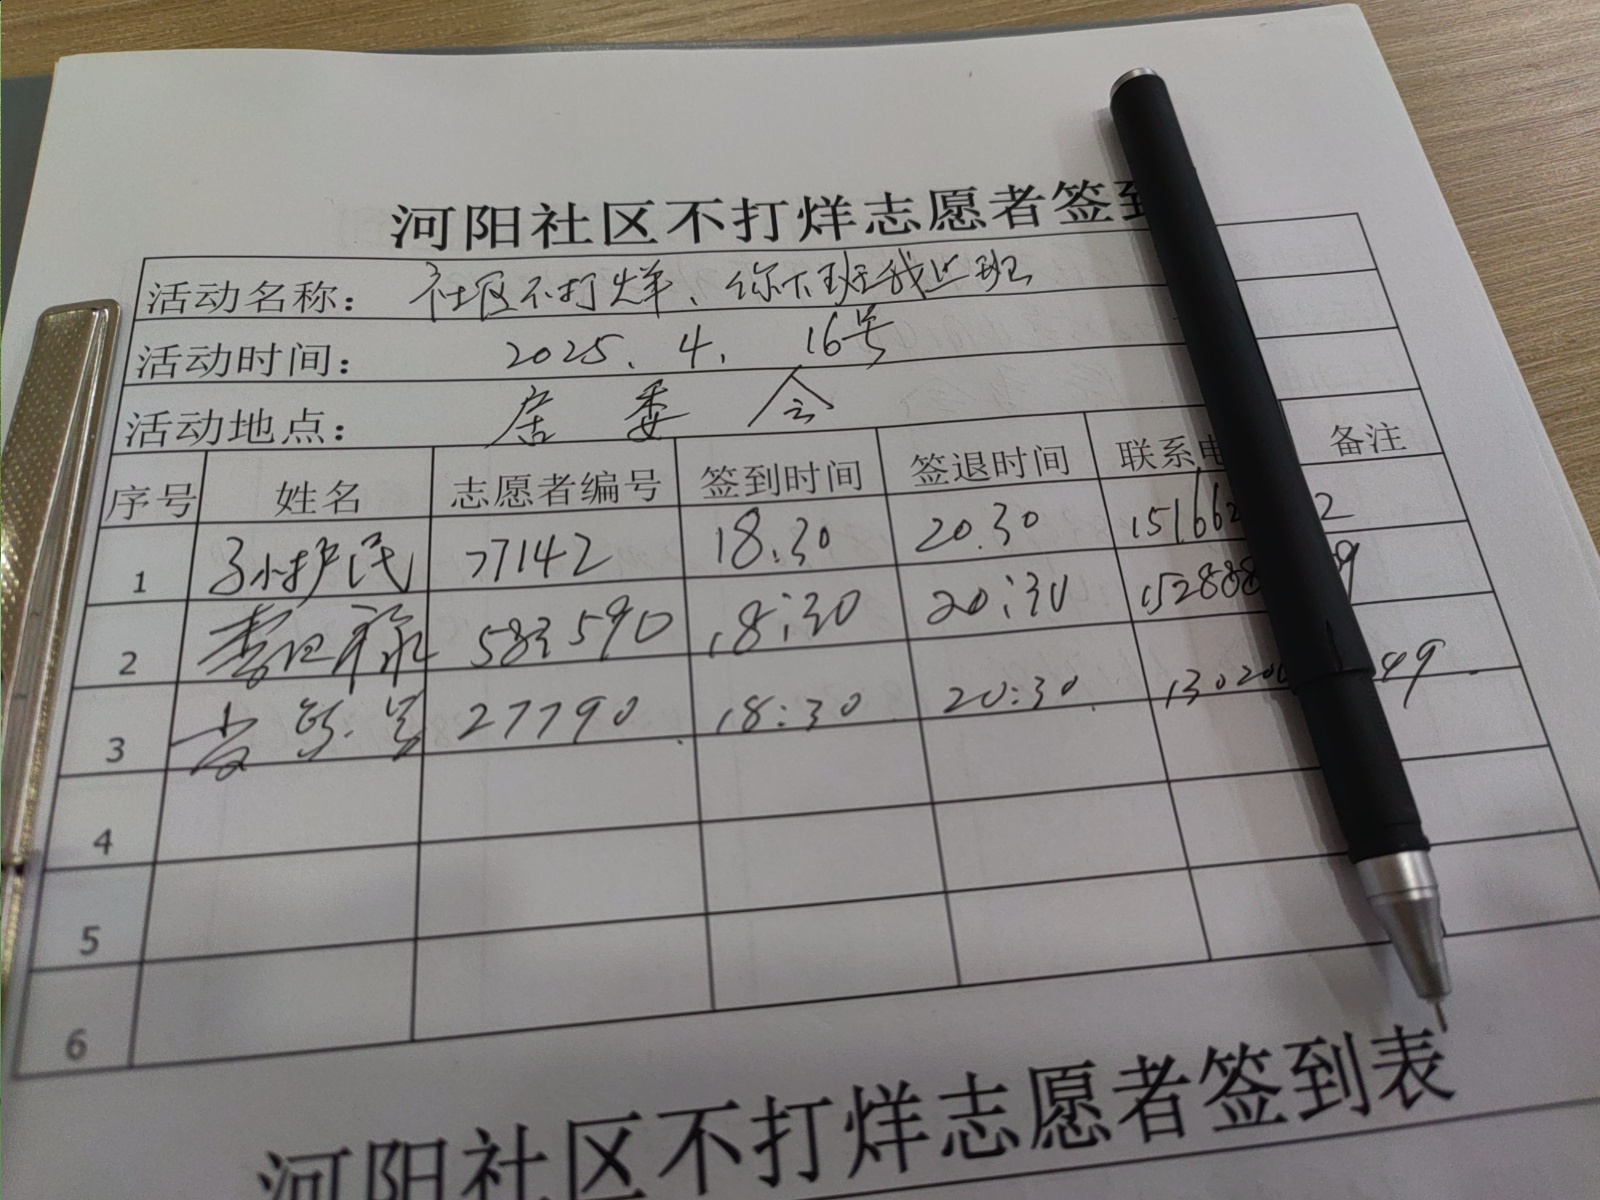 河阳社区不打烊志愿者签到
活动名称： 社区不打烊、你下班我上班
活动时间： 2025. 4. 16号
活动地点： 居委会
序号 姓名 志愿者编号 签到时间 签退时间 联系电 备注
1 孙护民 77142 18.30 20.30 151662 2
2 583590 18:30 20:30 152888 9
3 27790 18:30 20:30 130200 49
4
5
6
河阳社区不打烊志愿者签到表